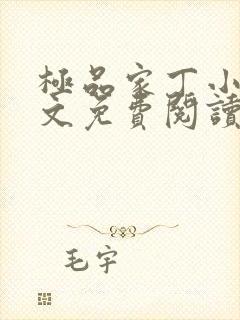 極品家丁小
文免費閱讀
毛宇